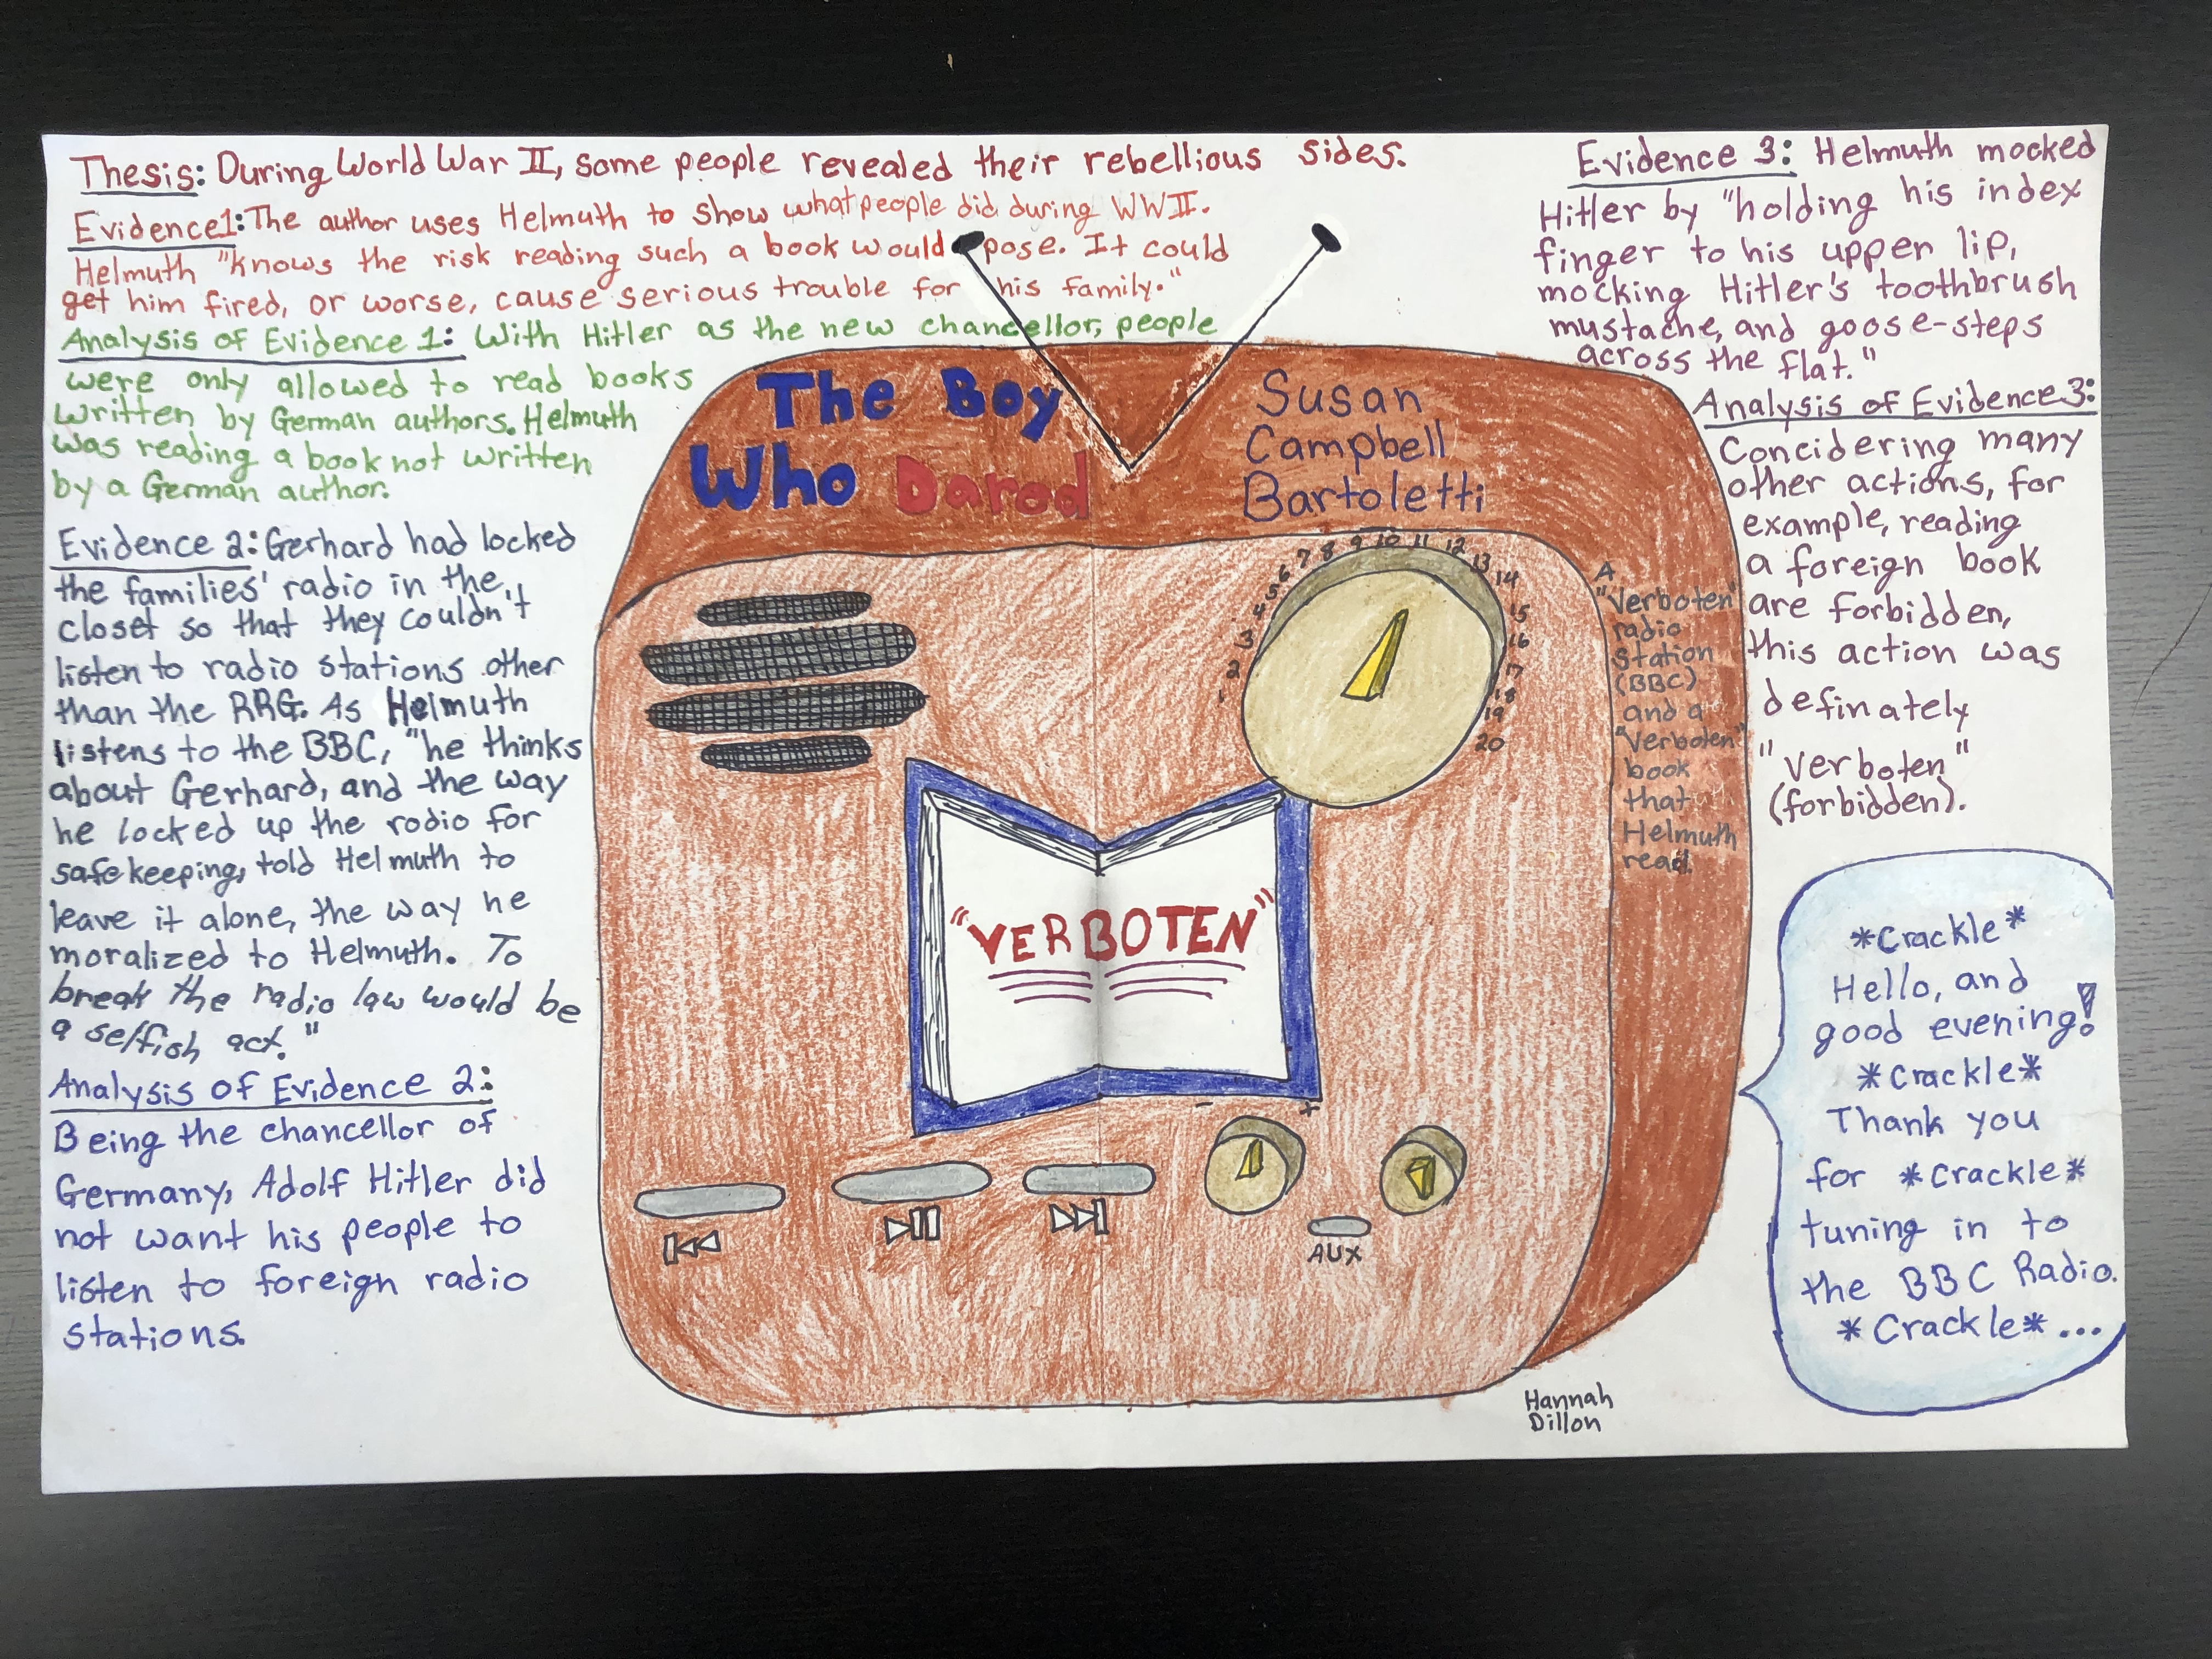 Thesis: During World War II, some people revealed their rebellious sides.
Evidence1: The author uses Helmuth to show what people did during WWII.
Helmuth "knows the risk reading such a book would pose. It could
get him fired, or worse, cause serious trouble for his family."
Analysis of Evidence 1: With Hitler as the new chancellor, people
were only allowed to read books
written by German authors. Helmuth
was reading a book not written
by a German author.
Evidence 2: Gerhard had locked
the families' radio in the
closet so that they couldn't
listen to radio stations other
than the RRG. As Helmuth
listens to the BBC, "he thinks
about Gerhard, and the way
he locked up the rodio for
safekeeping, told Helmuth to
leave it alone, the way he
moralized to Helmuth. To
break the radio law would be
a selfish act."
Analysis of Evidence 2:
Being the chancellor of
Germany, Adolf Hitler did
not want his people to
listen to foreign radio
stations.
The Boy
Who Dared
Susan
Campbell
Bartoletti
1 2 3 4 5 6 7 8 9 10 11 12 13 14 15 16 17 18 19 20
A
"Verboten"
radio
station
(BBC)
and a
"Verboten"
book
that
Helmuth
read.
"VERBOTEN"
- +
AUX
Hannah
Dillon
Evidence 3: Helmuth mocked
Hitler by "holding his index
finger to his upper lip,
mocking Hitler's toothbrush
mustache, and goose-steps
across the flat."
Analysis of Evidence 3:
Concidering many
other actions, for
example, reading
a foreign book
are forbidden,
this action was
definately
"verboten"
(forbidden).
*Crackle*
Hello, and
good evening!
*Crackle*
Thank you
for *Crackle*
tuning in to
the BBC Radio.
*Crackle*...